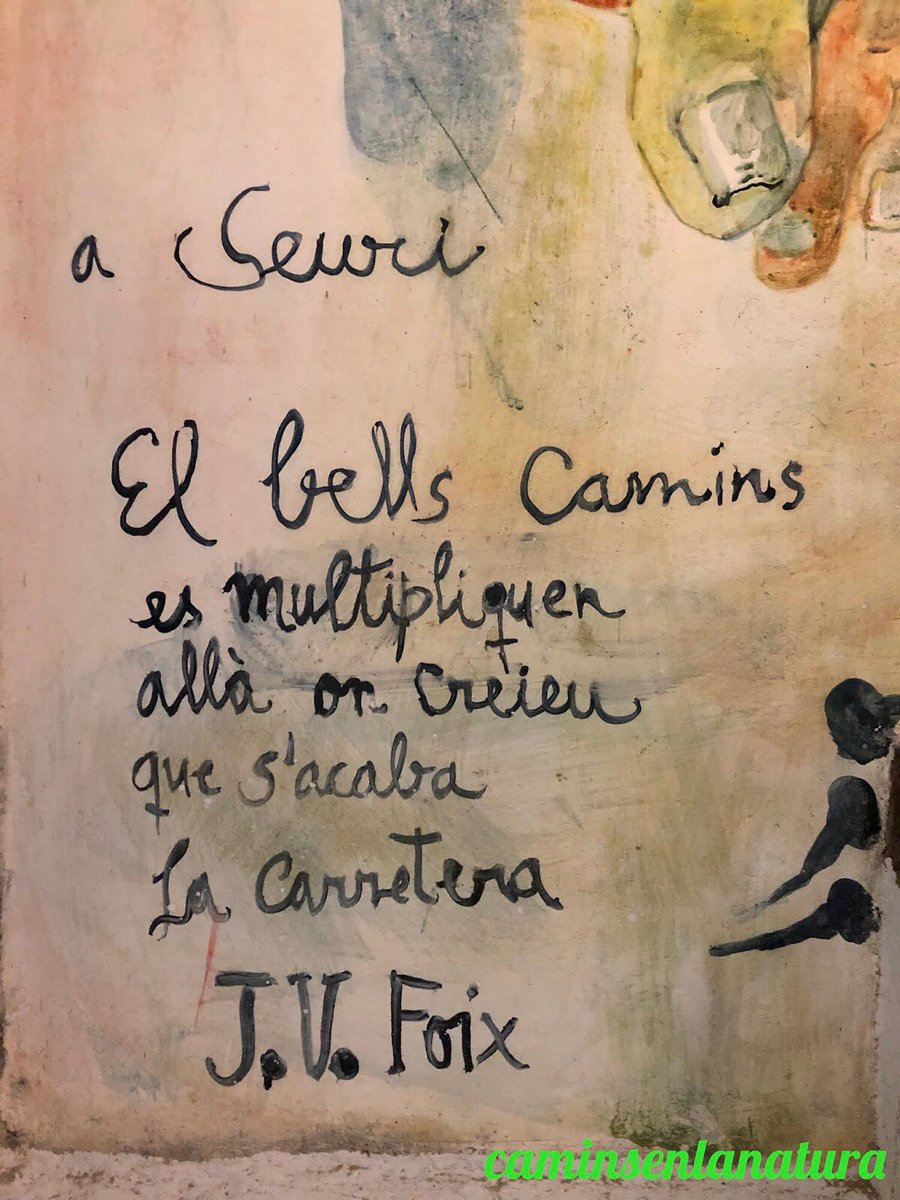 a Seuri
El bells Camins
es multipliquen
allà on creieu
que s'acaba
La Carretera
J.V. Foix
caminsenlanatura